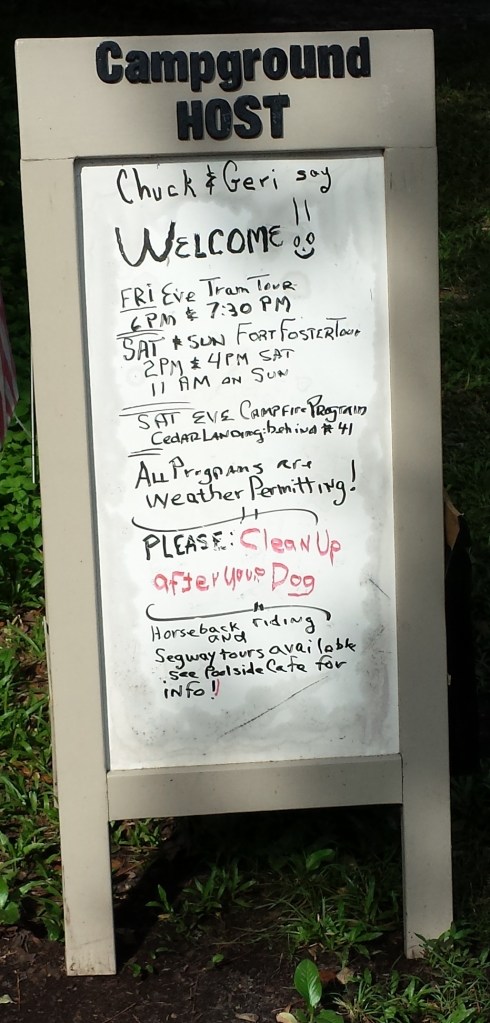 Campground
HOST
Chuck & Geri say
WELCOME !!
FRI Eve Tram Tour
6PM & 7:30 PM
SAT & SUN FORT FOSTER Tour
2PM & 4PM SAT
11 AM ON SUN
SAT EVE CAMPFIRE PROGRAM
CEDAR LANDING: behind #41
ALL Programs are
Weather Permitting!
PLEASE: Clean Up
after your Dog
Horseback riding
and
Segway tours available
see Poolside Cafe for
info!!